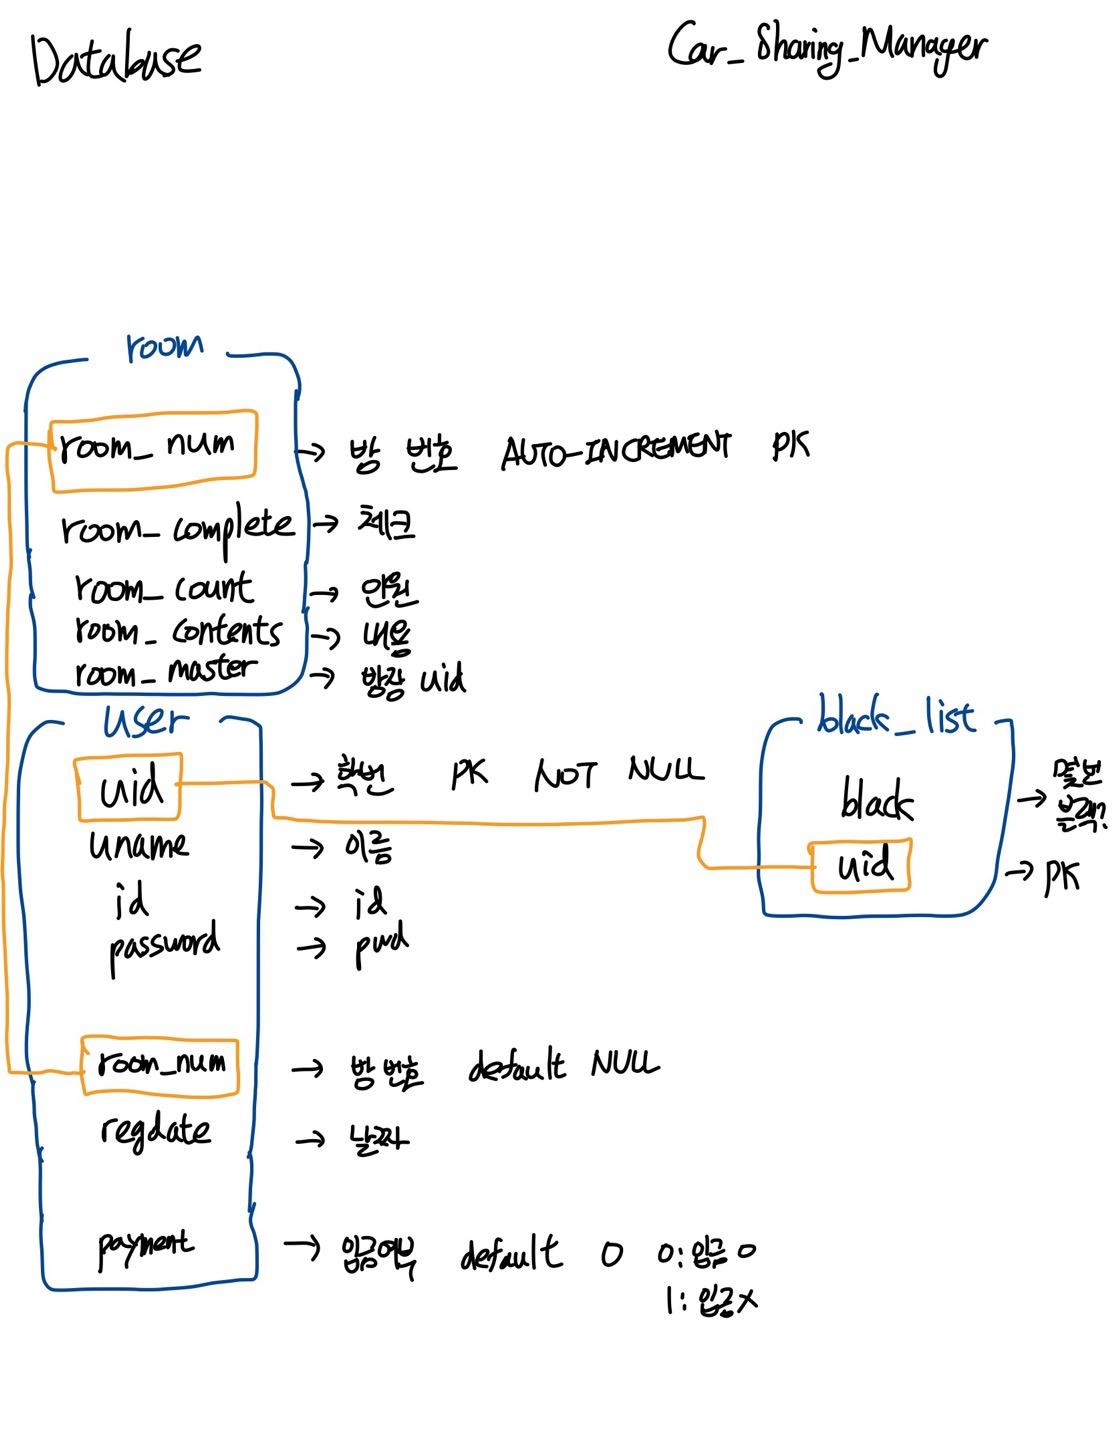 Database
Car_Sharing_Manager
room
room_num → 방 번호 AUTO-INCREMENT PK
room_complete → 체크
room_count → 인원
room_contents → 내용
room_master → 방장 uid
user
uid → 학번 PK NOT NULL
uname → 이름
id → id
password → pwd
room_num → 방 번호 default NULL
regdate → 날짜
payment → 입금여부 default 0 0:입금 o
1:입금x
black_list
black → 몇번
블랙?
uid → PK